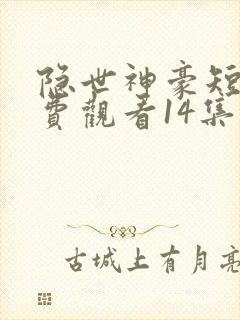 隐世神豪短
費觀看14集
古城上有月亮